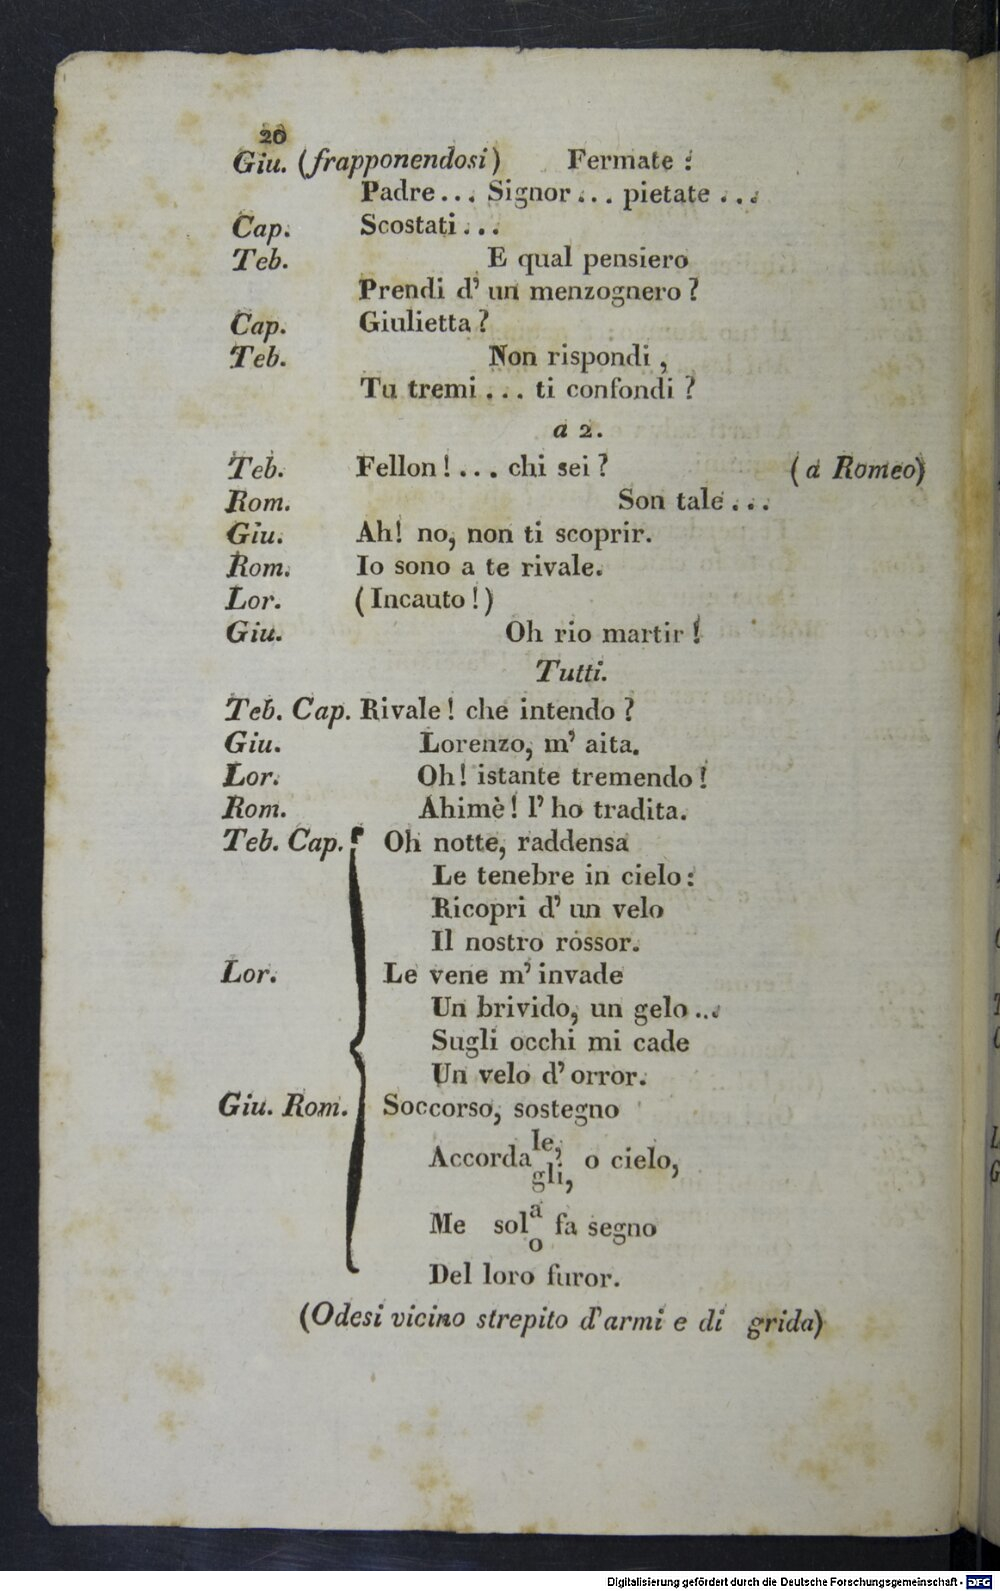 20
Giu. (frapponendosi) Fermate :
Padre... Signor... pietate ...
Cap. Scostati...
Teb. E qual pensiero
Prendi d' un menzognero?
Cap. Giulietta?
Teb. Non rispondi,
Tu tremi... ti confondi?
a 2.
Teb. Fellon!... chi sei? (a Romeo)
Rom. Son tale...
Giu. Ah! no, non ti scoprir.
Rom. Io sono a te rivale.
Lor. (Incauto!)
Giu. Oh rio martir!
Tutti.
Teb. Cap. Rivale! che intendo?
Giu. Lorenzo, m' aita.
Lor. Oh! istante tremendo!
Rom. Ahimè! l' ho tradita.
Teb. Cap. Oh notte, raddensa
Le tenebre in cielo:
Ricopri d' un velo
Il nostro rossor.
Lor. Le vene m' invade
Un brivido, un gelo...
Sugli occhi mi cade
Un velo d' orror.
Giu. Rom. Soccorso, sostegno
le,
Accorda , o cielo,
gli,
a
Me sol fa segno
o
Del loro furor.
(Odesi vicino strepito d'armi e di grida)
Digitalisierung gefördert durch die Deutsche Forschungsgemeinschaft - DFG